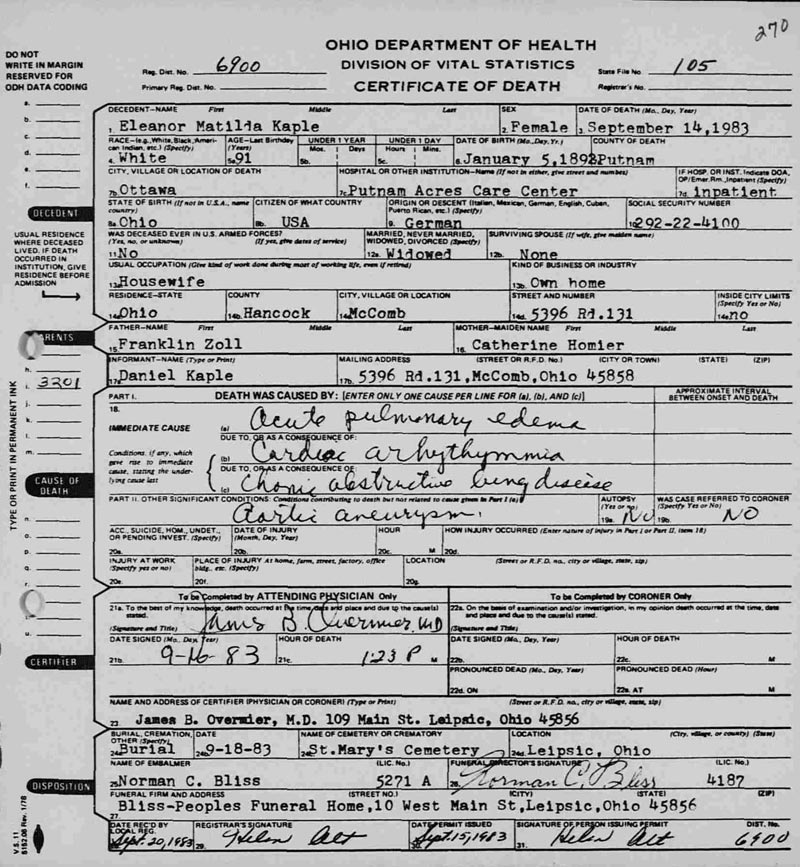 270
DO NOT
WRITE IN MARGIN
RESERVED FOR
ODH DATA CODING
OHIO DEPARTMENT OF HEALTH
DIVISION OF VITAL STATISTICS
CERTIFICATE OF DEATH
Reg. Dist. No. 6900
Primary Reg. Dist. No.
State File No. 105
Registrar's No.
DECEDENT—NAME First Middle Last SEX DATE OF DEATH (Mo., Day, Year)
1. Eleanor Matilda Kaple 2. Female 3. September 14,1983
RACE—(e.g., White, Black, American Indian, etc.) (Specify) AGE—Last Birthday (Years) UNDER 1 YEAR Mos. Days UNDER 1 DAY Hours Mins. DATE OF BIRTH (Mo., Day, Yr.) COUNTY OF DEATH
4. White 5a. 91 5b. 5c. 6. January 5,1892 Putnam
CITY, VILLAGE OR LOCATION OF DEATH HOSPITAL OR OTHER INSTITUTION—Name (If not in either, give street and number) IF HOSP. OR INST. Indicate DOA, OP/Emer. Rm., Inpatient (Specify)
7b Ottawa 7c. Putnam Acres Care Center 7d. inpatient
DECEDENT
STATE OF BIRTH (If not in U.S.A., name country) CITIZEN OF WHAT COUNTRY ORIGIN OR DESCENT (Italian, Mexican, German, English, Cuban, Puerto Rican, etc.) (Specify) SOCIAL SECURITY NUMBER
8a. Ohio 8b. USA German 10. 292-22-4100
USUAL RESIDENCE
WHERE DECEASED
LIVED. IF DEATH
OCCURRED IN
INSTITUTION, GIVE
RESIDENCE BEFORE
ADMISSION
WAS DECEASED EVER IN U.S. ARMED FORCES? (Yes, no, or unknown) (If yes, give dates of service) MARRIED, NEVER MARRIED, WIDOWED, DIVORCED (Specify) SURVIVING SPOUSE (If wife, give maiden name)
11. No 12a. Widowed 12b. None
USUAL OCCUPATION (Give kind of work done during most of working life, even if retired) KIND OF BUSINESS OR INDUSTRY
13a. Housewife 13b. Own home
RESIDENCE—STATE COUNTY CITY, VILLAGE OR LOCATION STREET AND NUMBER INSIDE CITY LIMITS (Specify Yes or No)
14a. Ohio 14b. Hancock 14c. McComb 14d. 5396 Rd.131 14e. no
PARENTS
FATHER—NAME First Middle Last MOTHER—MAIDEN NAME First Middle Last
15. Franklin Zoll 16. Catherine Homier
INFORMANT—NAME (Type or Print) MAILING ADDRESS (STREET OR R.F.D. No.) (CITY OR TOWN) (STATE) (ZIP)
17a. Daniel Kaple 17b. 5396 Rd.131,McComb,Ohio 45858
3201
PART I. DEATH WAS CAUSED BY: [ENTER ONLY ONE CAUSE PER LINE FOR (a), (b), AND (c)] APPROXIMATE INTERVAL BETWEEN ONSET AND DEATH
18.
IMMEDIATE CAUSE (a) Acute pulmonary edema
DUE TO, OR AS A CONSEQUENCE OF:
Conditions, if any, which gave rise to immediate cause, stating the underlying cause last
(b) Cardiac arhythymmia
DUE TO, OR AS A CONSEQUENCE OF:
(c) Chonic obstructive lung disease
CAUSE OF
DEATH
TYPE OR PRINT IN PERMANENT INK
PART II. OTHER SIGNIFICANT CONDITIONS: Conditions contributing to death but not related to cause given in Part I (a) AUTOPSY (Yes or no) WAS CASE REFERRED TO CORONER (Specify Yes or No)
Aortic aneurysm. 19a. No 19b. NO
ACC., SUICIDE, HOM., UNDET., OR PENDING INVEST. (Specify) DATE OF INJURY (Month, Day, Year) HOUR HOW INJURY OCCURRED (Enter nature of injury in Part I or Part II, item 18)
20a. 20b. 20c. M 20d.
INJURY AT WORK (Specify yes or no) PLACE OF INJURY At home, farm, street, factory, office bldg., etc. (Specify) LOCATION (Street or R.F.D. no., city or village, state, zip)
20e. 20f.
To be Completed by ATTENDING PHYSICIAN Only To be Completed by CORONER Only
21a. To the best of my knowledge, death occurred at the time, date and place and due to the cause(s) stated. 22a. On the basis of examination and/or investigation, in my opinion death occurred at the time, date and place and due to the cause(s) stated.
(Signature and Title) James B. Overmier, MD (Signature and Title)
DATE SIGNED (Mo., Day, Year) HOUR OF DEATH DATE SIGNED (Mo., Day, Year) HOUR OF DEATH
21b. 9-16-83 21c. 1:23 P M 22b. 22c. M
PRONOUNCED DEAD (Mo., Day, Year) PRONOUNCED DEAD (Hour)
22d. ON 22e. AT M
CERTIFIER
NAME AND ADDRESS OF CERTIFIER (PHYSICIAN OR CORONER) (Type or Print) (Street or R.F.D. no., city or village, state, zip)
23. James B. Overmier, M.D. 109 Main St. Leipsic, Ohio 45856
BURIAL, CREMATION, OTHER (Specify) DATE NAME OF CEMETERY OR CREMATORY LOCATION (City, village, or county) (State)
24a. Burial 24b. 9-18-83 24c. St.Mary's Cemetery 24d. Leipsic, Ohio
DISPOSITION
NAME OF EMBALMER (LIC. No.) FUNERAL DIRECTOR'S SIGNATURE (LIC. No.)
25. Norman C. Bliss 5271 A 26. Norman C. Bliss 4187
FUNERAL FIRM AND ADDRESS (STREET NO.) (CITY) (STATE) (ZIP)
27. Bliss-Peoples Funeral Home,10 West Main St,Leipsic,Ohio 45856
DATE REC'D BY LOCAL REG. REGISTRAR'S SIGNATURE DATE PERMIT ISSUED SIGNATURE OF PERSON ISSUING PERMIT DIST. No.
Sept. 20,1983 29. Helen Alt Sept. 15,1983 31. Helen Alt 6900
V.S. 11
5152.06 Rev. 1/78